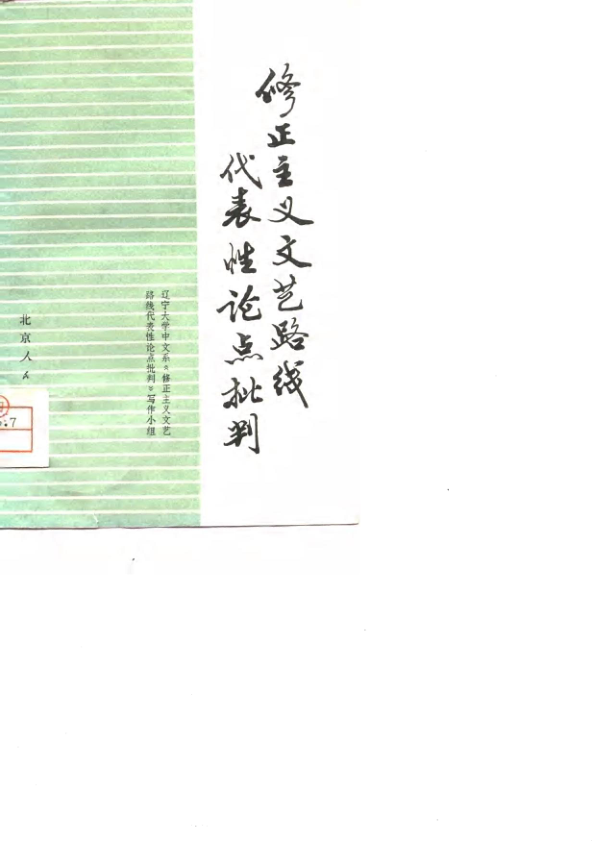 修正主义文艺路线
代表性论点批判
辽宁大学中文系《修正主义文艺
路线代表性论点批判》写作小组
北京人